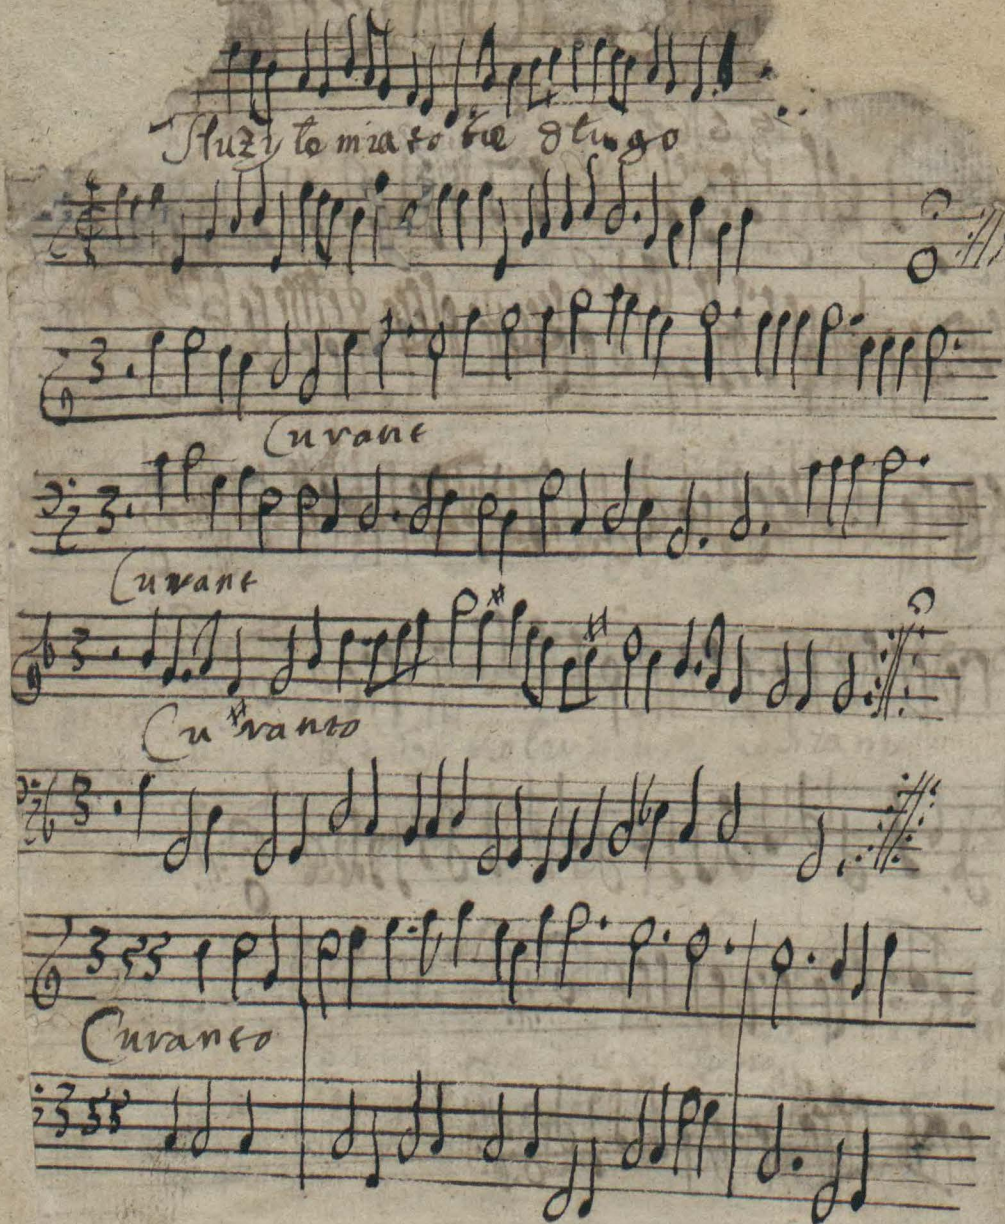 Służyłem ia tobie długo
Curant
Curant
Curanto
Curanto